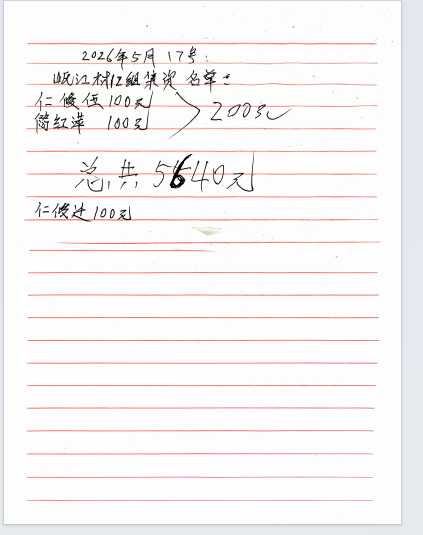 2026年5月17号:
岷江村12组集资名单:
仁俊伍100元
简红萍 100元
200元
总共5640元
仁俊迁100元